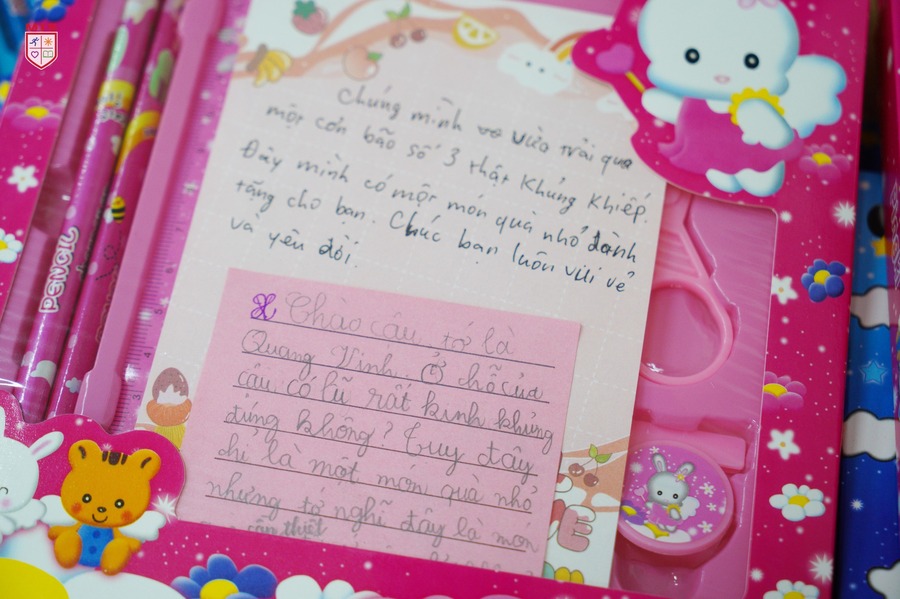 Chúng mình vơ vừa trải qua
một cơn bão số 3 thật khủng khiếp.
Đây mình có một món quà nhỏ dành
tặng cho bạn. Chúc bạn luôn vui vẻ
và yêu đời.
Chào cậu, tớ là
Quang Vinh. Ở chỗ của
cậu có lũ rất kinh khủng
đúng không? Tuy đây
chỉ là một món quà nhỏ
nhưng tớ nghĩ đây là món
cần thiết
PENCIL